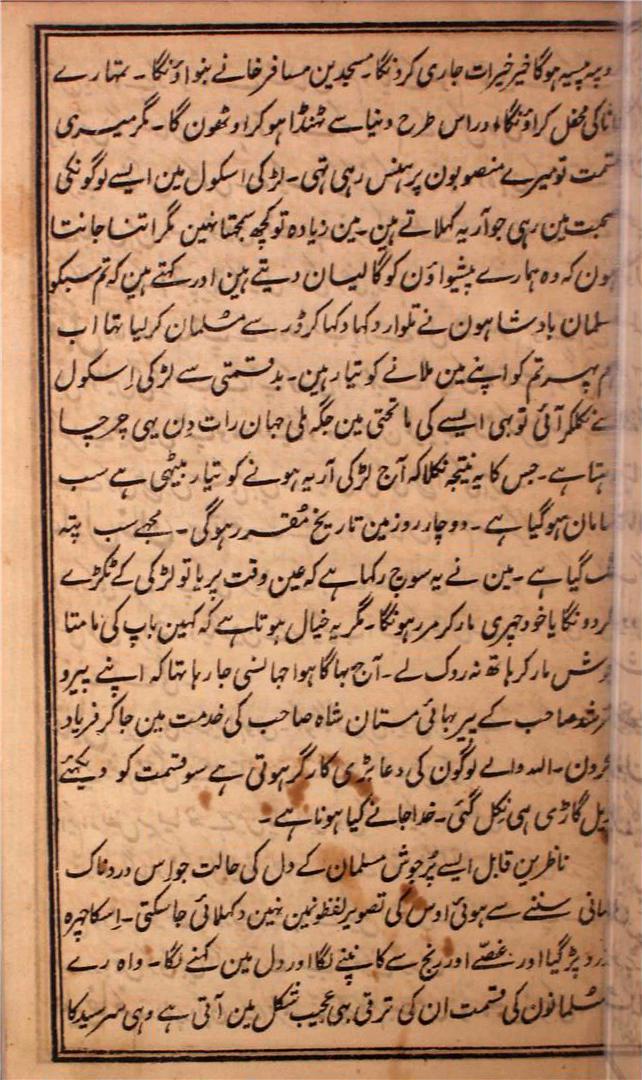 روپیہ پیسہ ہوگا خیر خیرات جاری کرونگا۔ مسجدین مسافر خانے بنواؤنگا۔ تمہارے
نانا کی محفل کراؤنگا، اور اس طرح دنیا سے ٹہنڈا ہو کر اوٹھون گا۔ مگر میری
قسمت تو میرے منصوبون پر ہنس رہی تہی۔ لڑکی اسکول مین ایسے لوگونکی
صحبت مین رہی جو آریہ کہلاتے ہین۔ مین زیادہ تو کچھ سمجہتا نہین مگر اتنا جانتا
ہون کہ وہ ہمارے پیشواؤن کو گالیان دیتے ہین اور کہتے ہین کہ تم سبکو
مسلمان بادشاہون نے تلوار دکہا دکہا کر ڈر سے مسلمان کرلیا تہا اب
ہم پہر تم کو اپنے مین ملانے کو تیار ہین۔ بدقسمتی سے لڑکی اسکول
سے نکلکر آئی تو ہی ایسے کی ماتحتی مین جگہ ملی جہان رات دن یہی چرچا
رہتا ہے۔ جس کا یہ نتیجہ نکلا کہ آج لڑکی آریہ ہونے کو تیار بیٹہی ہے سب
سامان ہوگیا ہے۔ دو چار روز مین تاریخ مقرر ہوگی۔ مجہے سب پتہ
لگ گیا ہے۔ مین نے یہ سوچ رکہا ہے کہ عین وقت پر یا تو لڑکی کے ٹکڑے
کردونگا یا خود چہری مار کر مر رہونگا۔ مگر یہ خیال ہوتا ہے کہ کہین باپ کی مامتا
جوش مار کر ہاتھ نہ روک لے۔ آج بہاگا ہوا جہانسی جا رہا تہا کہ اپنے پیر و
مرشد صاحب کے پیر بہائی مستان شاہ صاحب کی خدمت مین جا کر فریاد
کرون۔ اللہ والے لوگون کی دعا بڑی کارگر ہوتی ہے سو قسمت کو دیکہئے
ریل گاڑی ہی نکل گئی۔ خدا جانے کیا ہونا ہے۔
ناظرین قابل ایسے پُرجوش مسلمان کے دل کی حالت جو اس دردناک
کہانی سننے سے ہوئی اوس کی تصویر لفظونین نہین دکہلائی جاسکتی۔ اسکا چہرہ
زرد پڑ گیا اور غصّے اور رنج سے کانپنے لگا اور دل مین کہنے لگا۔ واہ رے
مسلمانون کی قسمت ان کی ترقی بہی عجیب شکل مین آتی ہے وہی سرسید کا